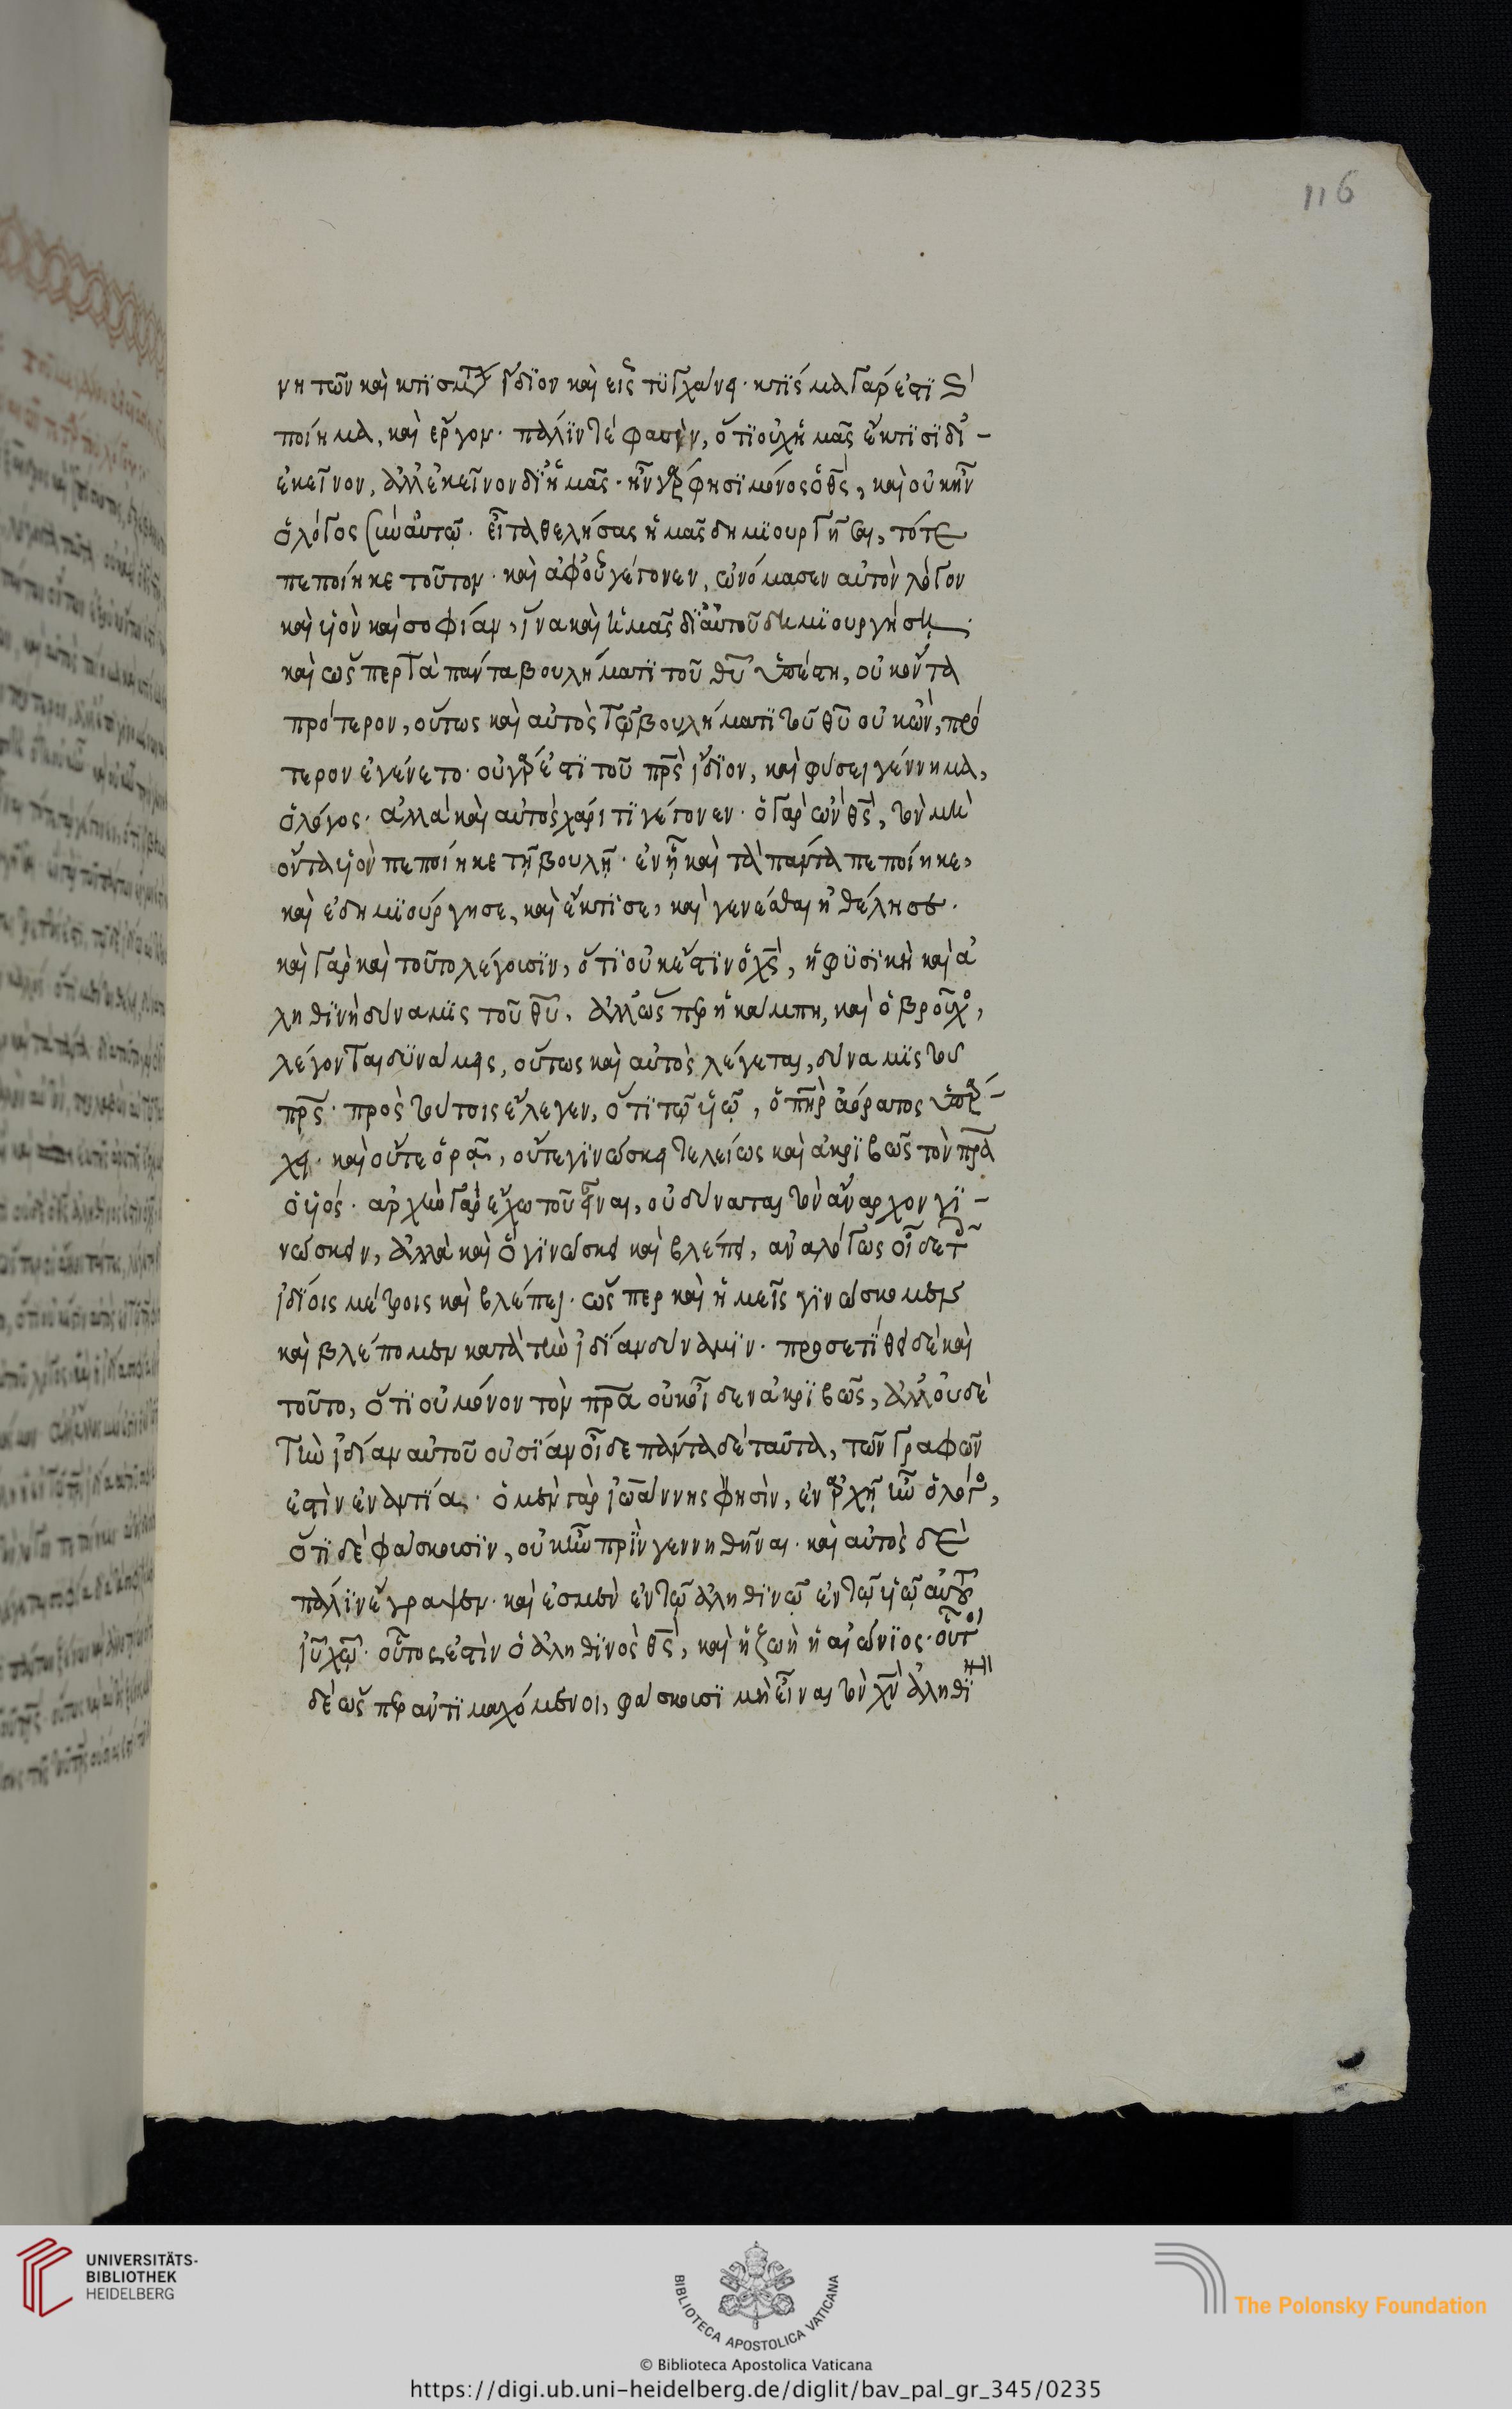 116
νητῶν καὶ κτισμάτων ἴδιον καὶ εἷς τυγχάνει· κτίσμα γάρ ἐστι καὶ
ποίημα, καὶ ἔργον· πάλιν τέ φασὶν, ὅτι οὐχ ἡμᾶς ἔκτισε δι᾽ –
ἐκεῖνον, ἀλλ᾽ ἐκεῖνον δι᾽ ἡμᾶς· ἦν γάρ φησι μόνος ὁ θς, καὶ οὐκ ἦν
ὁ λόγος σὺν αὐτῷ. εἶτα θελήσας ἡμᾶς δημιουργῆσαι, τότε
πεποίηκε τοῦτον· καὶ ἀφ᾽ οὗ γέγονεν, ὠνόμασεν αὐτὸν λόγον
καὶ υἱὸν καὶ σοφίαν, ἵνα καὶ ἡμᾶς δι᾽ αὐτοῦ δημιουργήσῃ.
καὶ ὥσπερ τὰ πάντα βουλήματι τοῦ θυ ὑπέστη, οὐκ ὄντα
πρότερον, οὕτως καὶ αὐτὸς τῷ βουλήματι τοῦ θυ οὐκ ὢν, πρό
τερον ἐγένετο· οὐ γάρ ἐστι τοῦ πρς ἴδιον, καὶ φύσει γέννημα,
ὁ λόγος· ἀλλὰ καὶ αὐτὸς χάριτι γέγονεν· ὁ γὰρ ὢν θς, τὸν μὴ
ὄντα υἱὸν πεποίηκε τῇ βουλῇ· ἐν ᾗ καὶ τὰ πάντα πεποίηκε,
καὶ ἐδημιούργησε, καὶ ἔκτισε, καὶ γενέσθαι ἠθέλησε.
καὶ γὰρ καὶ τοῦτο λέγουσιν, ὅτι οὐκ ἔστιν ὁ χς, ἡ φυσικὴ καὶ ἀ
ληθινὴ δύναμις τοῦ θυ. ἀλλ᾽ ὥσπερ ἡ κάμπη, καὶ ὁ βροῦχος,
λέγονται δύναμεις, οὕτως καὶ αὐτὸς λέγεται, δύναμις τοῦ
πρς· πρὸς τούτοις ἔλεγεν, ὅτι τῷ υἱῷ, ὁ πηρ ἀόρατος ὑπάρ–
χει· καὶ οὔτε ὁρᾷ, οὔτε γινώσκει τελείως καὶ ἀκριβῶς τὸν πρα
ὁ υἱός· ἀρχὴν γὰρ ἔχω τοῦ εἶναι, οὐ δύναται τὸν ἄναρχον γι–
νώσκειν, ἀλλὰ καὶ ὃ γινώσκει καὶ βλέπει, ἀναλόγως οἶδε τοῖς
ἰδίοις μέτροις καὶ βλέπει· ὥσπερ καὶ ἡμεῖς γινώσκομεν
καὶ βλέπομεν κατὰ τὴν ἰδίαν δύναμιν· προσετίθει δὲ καὶ
τοῦτο, ὅτι οὐ μόνον τὸν πρα οὐκ οἶδεν ἀκριβῶς, ἀλλ᾽ οὐδὲ
τὴν ἰδίαν αὐτοῦ οὐσίαν οἶδε πάντα δὲ ταῦτα, τῶν γραφῶν
ἐστὶν ἐναντία. ὁ μὲν γὰρ ἰωάννης φησὶν, ἐν ἀρχῇ ἦν ὁ λόγος,
ὅτι δὲ φάσκουσιν, οὐκ ἦν πρὶν γεννηθῆναι· καὶ αὐτὸς δὲ
πάλιν ἔγραψεν· καὶ ἐσμὲν ἐν τῷ ἀληθινῷ ἐν τῷ υἱῷ αὐτοῦ
ιυ χῷ· οὗτος ἐστὶν ὁ ἀληθινὸς θς, καὶ ἡ ζωὴ ἡ αἰώνιος· οὗτοι
δὲ ὥσπερ ἀντιμαχόμενοι, φάσκουσι μὴ εἶναι τὸν χν ἀληθι
UNIVERSITÄTS-
BIBLIOTHEK
HEIDELBERG
BIBLIOTECA APOSTOLICA VATICANA
© Biblioteca Apostolica Vaticana
The Polonsky Foundation
https://digi.ub.uni-heidelberg.de/diglit/bav_pal_gr_345/0235